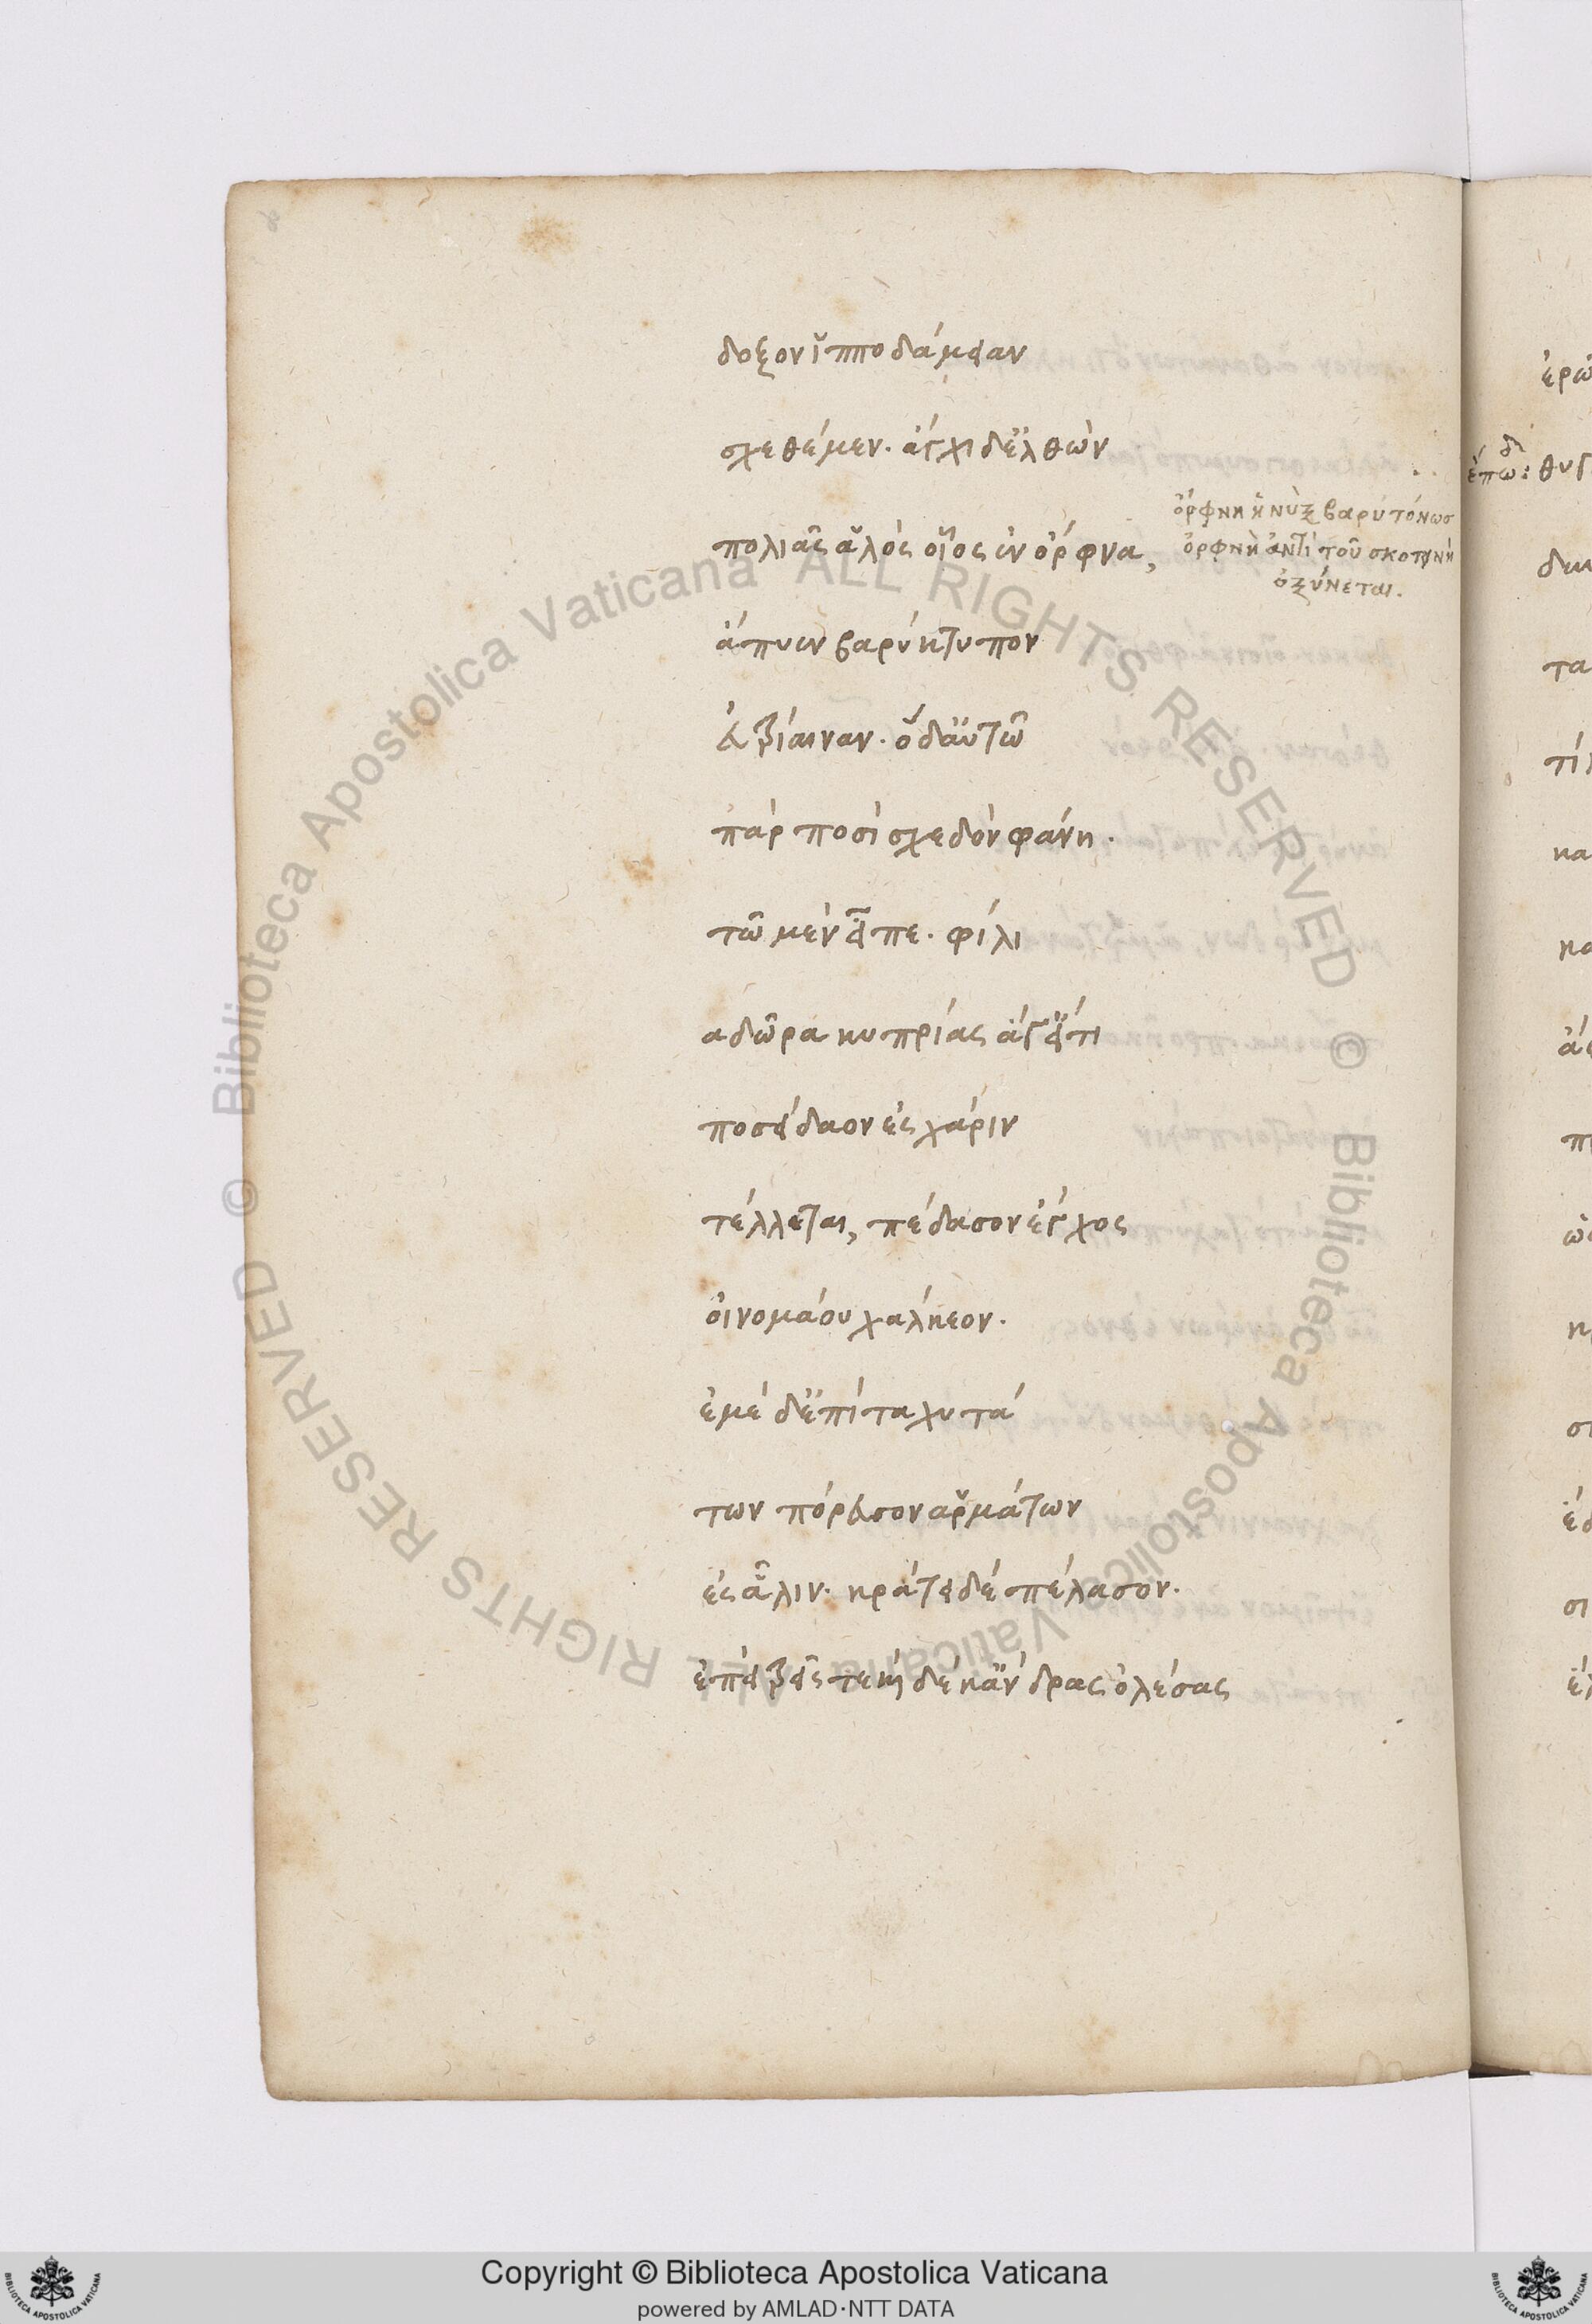 δοξον ἵπποδάμειαν
σχεθέμεν. ἄγχι δ' ἐλθὼν
πολιᾶς ἁλὸς οἶος ἐν ὄρφνα,
ὄρφνη ἡ νὺξ βαρυτόνωσ
ὀρφνὴ ἀντὶ τοῦ σκοτεινὴ
ὀξύνεται.
ἄπυεν βαρύκτυπον
εὐτρίαιναν. ὁ δ' αὐτῶ
πὰρ ποσὶ σχεδὸν φάνη.
τῶ μὲν εἶπε. φίλι
α δῶρα κυπρίας ἄγ' εἴ τι
ποσείδαον ἐς χάριν
τέλλεται, πέδασον ἔγχος
οἰνομάου χάλκεον.
ἐμὲ δ' ἐπὶ ταχυτά
των πόρευσον ἁρμάτων
ἐς ἆλιν. κράτει δὲ πέλασον.
ἐπεὶ τρεῖς τε καὶ δέκ' ἄνδρας ὀλέσας
ἐπωδ:
Copyright © Biblioteca Apostolica Vaticana
powered by AMLAD·NTT DATA
Biblioteca Apostolica Vaticana ALL RIGHTS RESERVED ©
Biblioteca Apostolica Vaticana ALL RIGHTS RESERVED ©